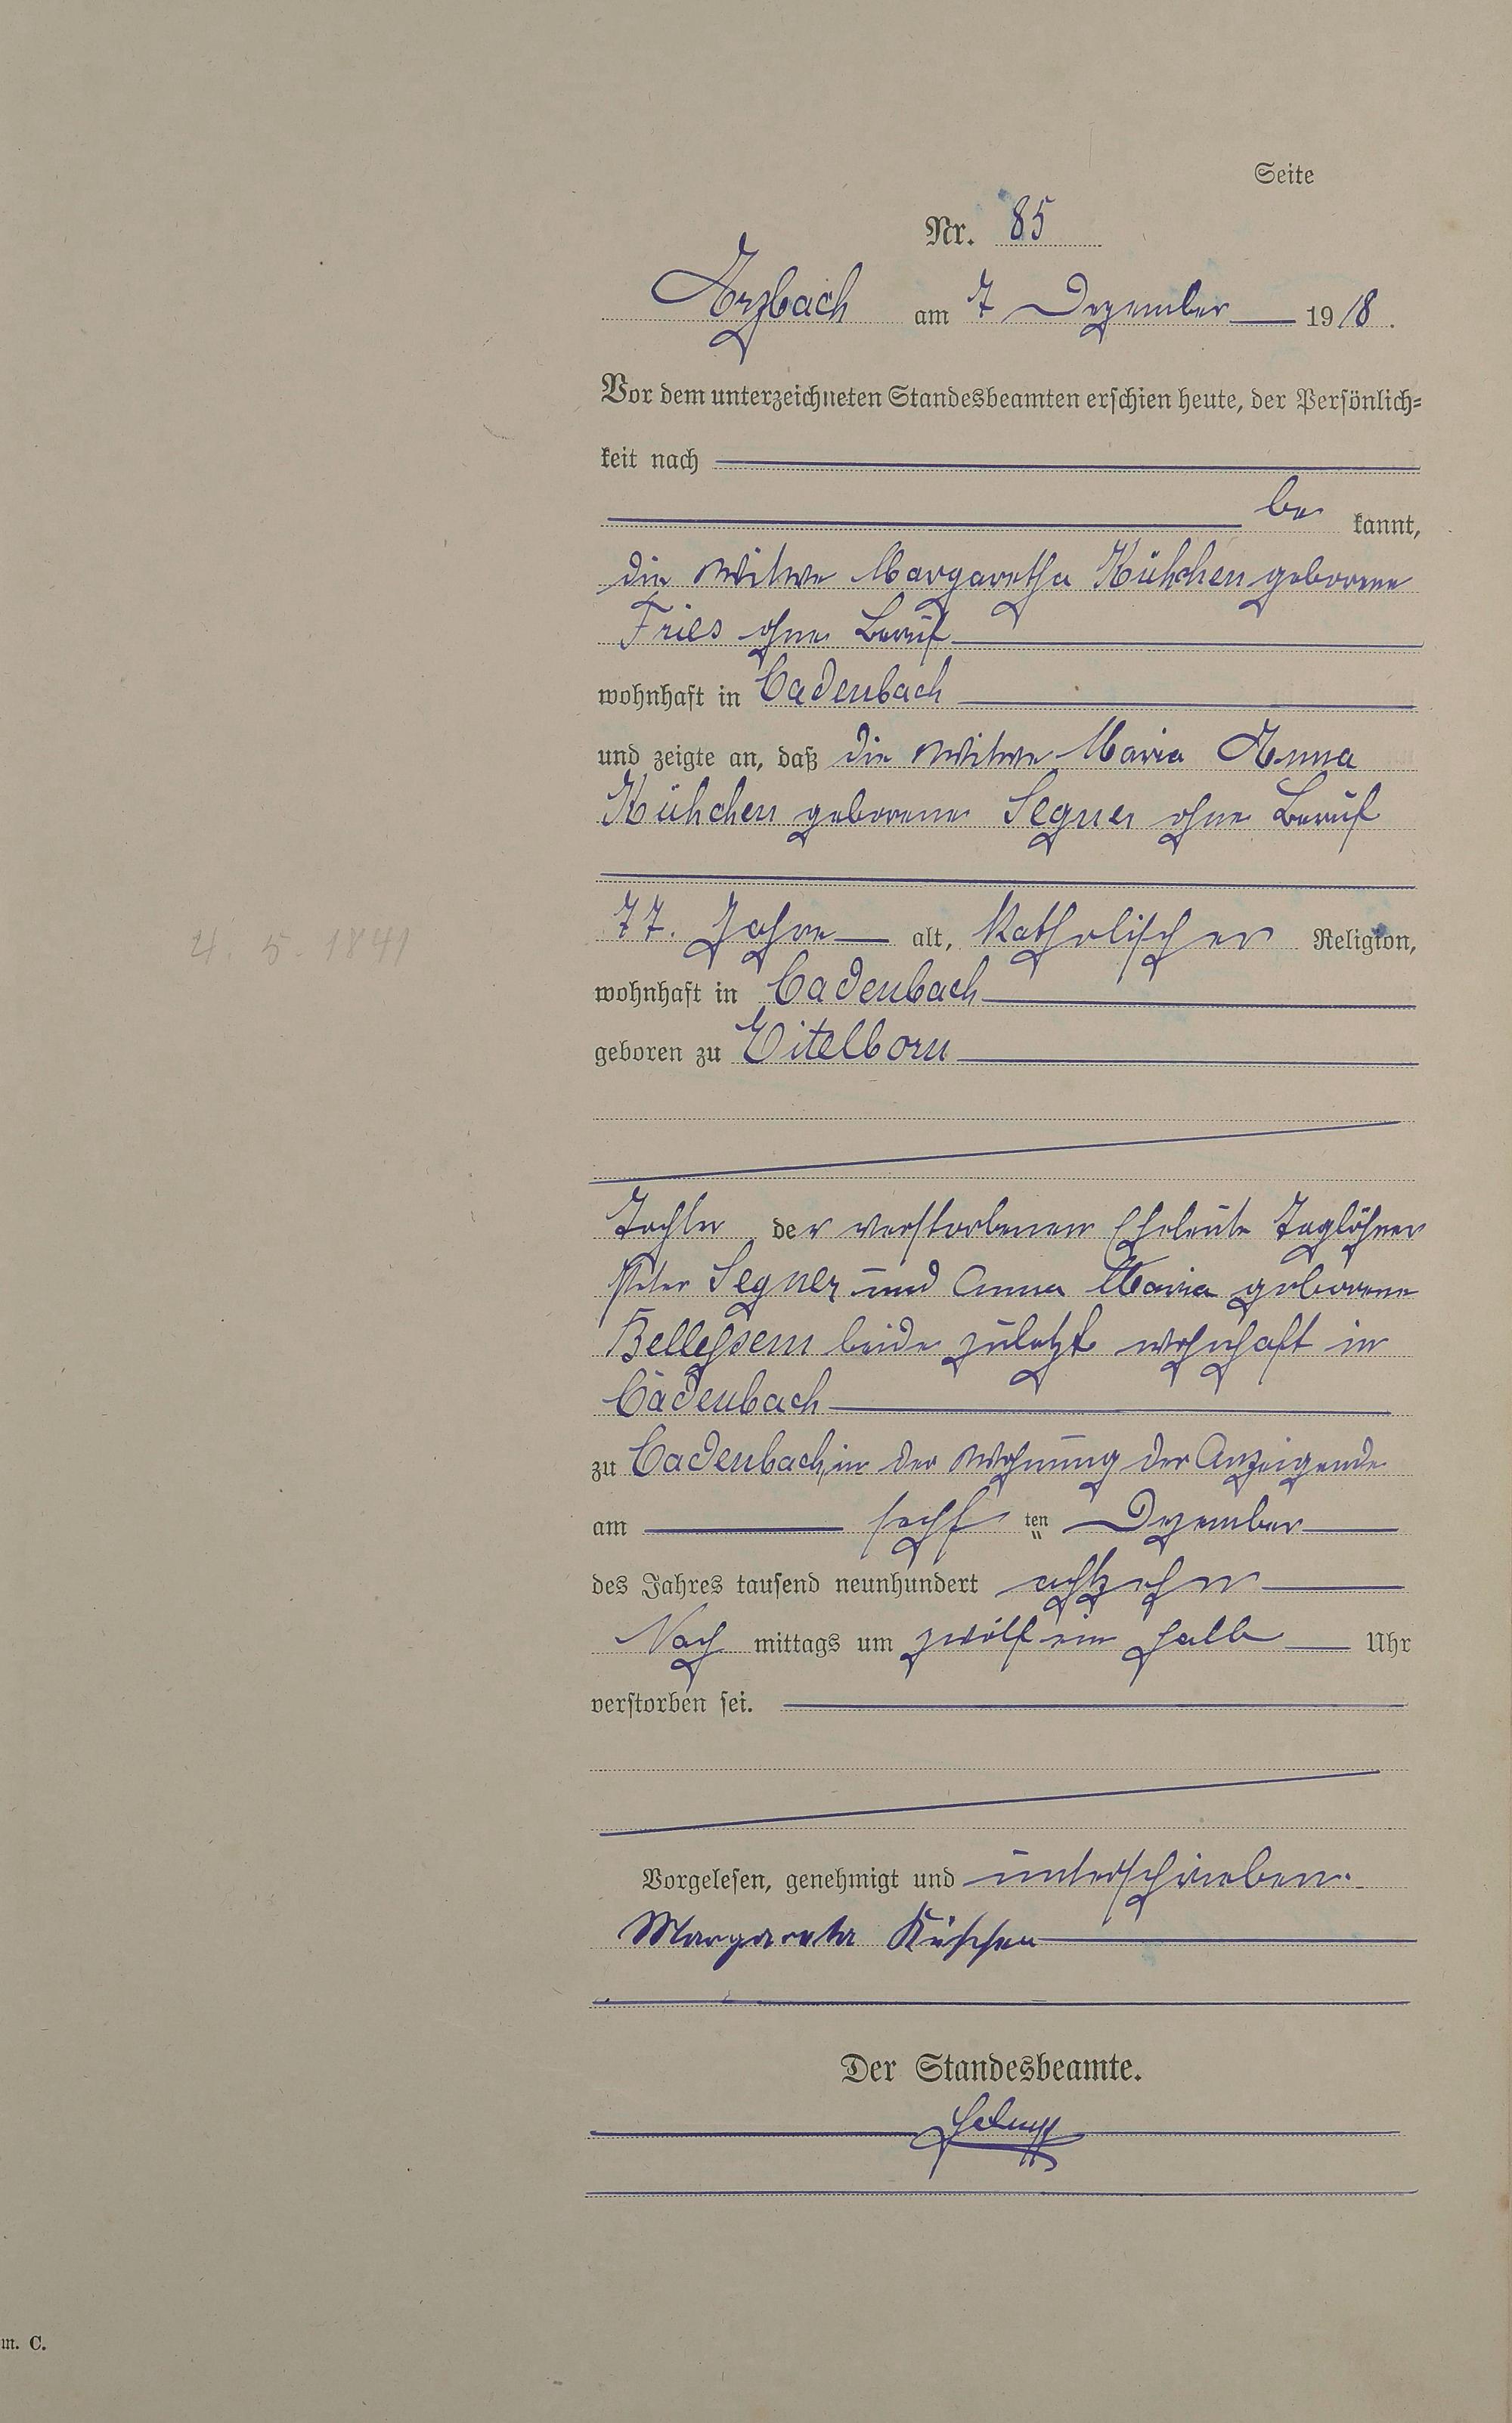 Seite
Nr. 85
Arzbach am 7 Dezember 1918.
Vor dem unterzeichneten Standesbeamten erschien heute, der Persönlich=
keit nach
be kannt,
die Witwe Margaretha Kühchen geborene
Fries ohne Beruf
wohnhaft in Cadenbach
und zeigte an, daß die Witwe Maria Anna
Kühchen geborene Segner ohne Beruf
77. Jahre alt, katholischer Religion,
4. 5. 1841
wohnhaft in Cadenbach
geboren zu Eitelborn
Tochter der verstorbenen Eheleute Taglöhner
Peter Segner und Anna Maria geborene
beide zuletzt wohnhaft in
Cadenbach
zu Cadenbach, in der Wohnung der Anzeigende
am sechs ten Dezember
des Jahres tausend neunhundert achtzehn
Nach mittags um zwölf ein halb Uhr
verstorben sei.
Vorgelesen, genehmigt und unterschrieben.
Margareta Kühchen
Der Standesbeamte.
m. C.